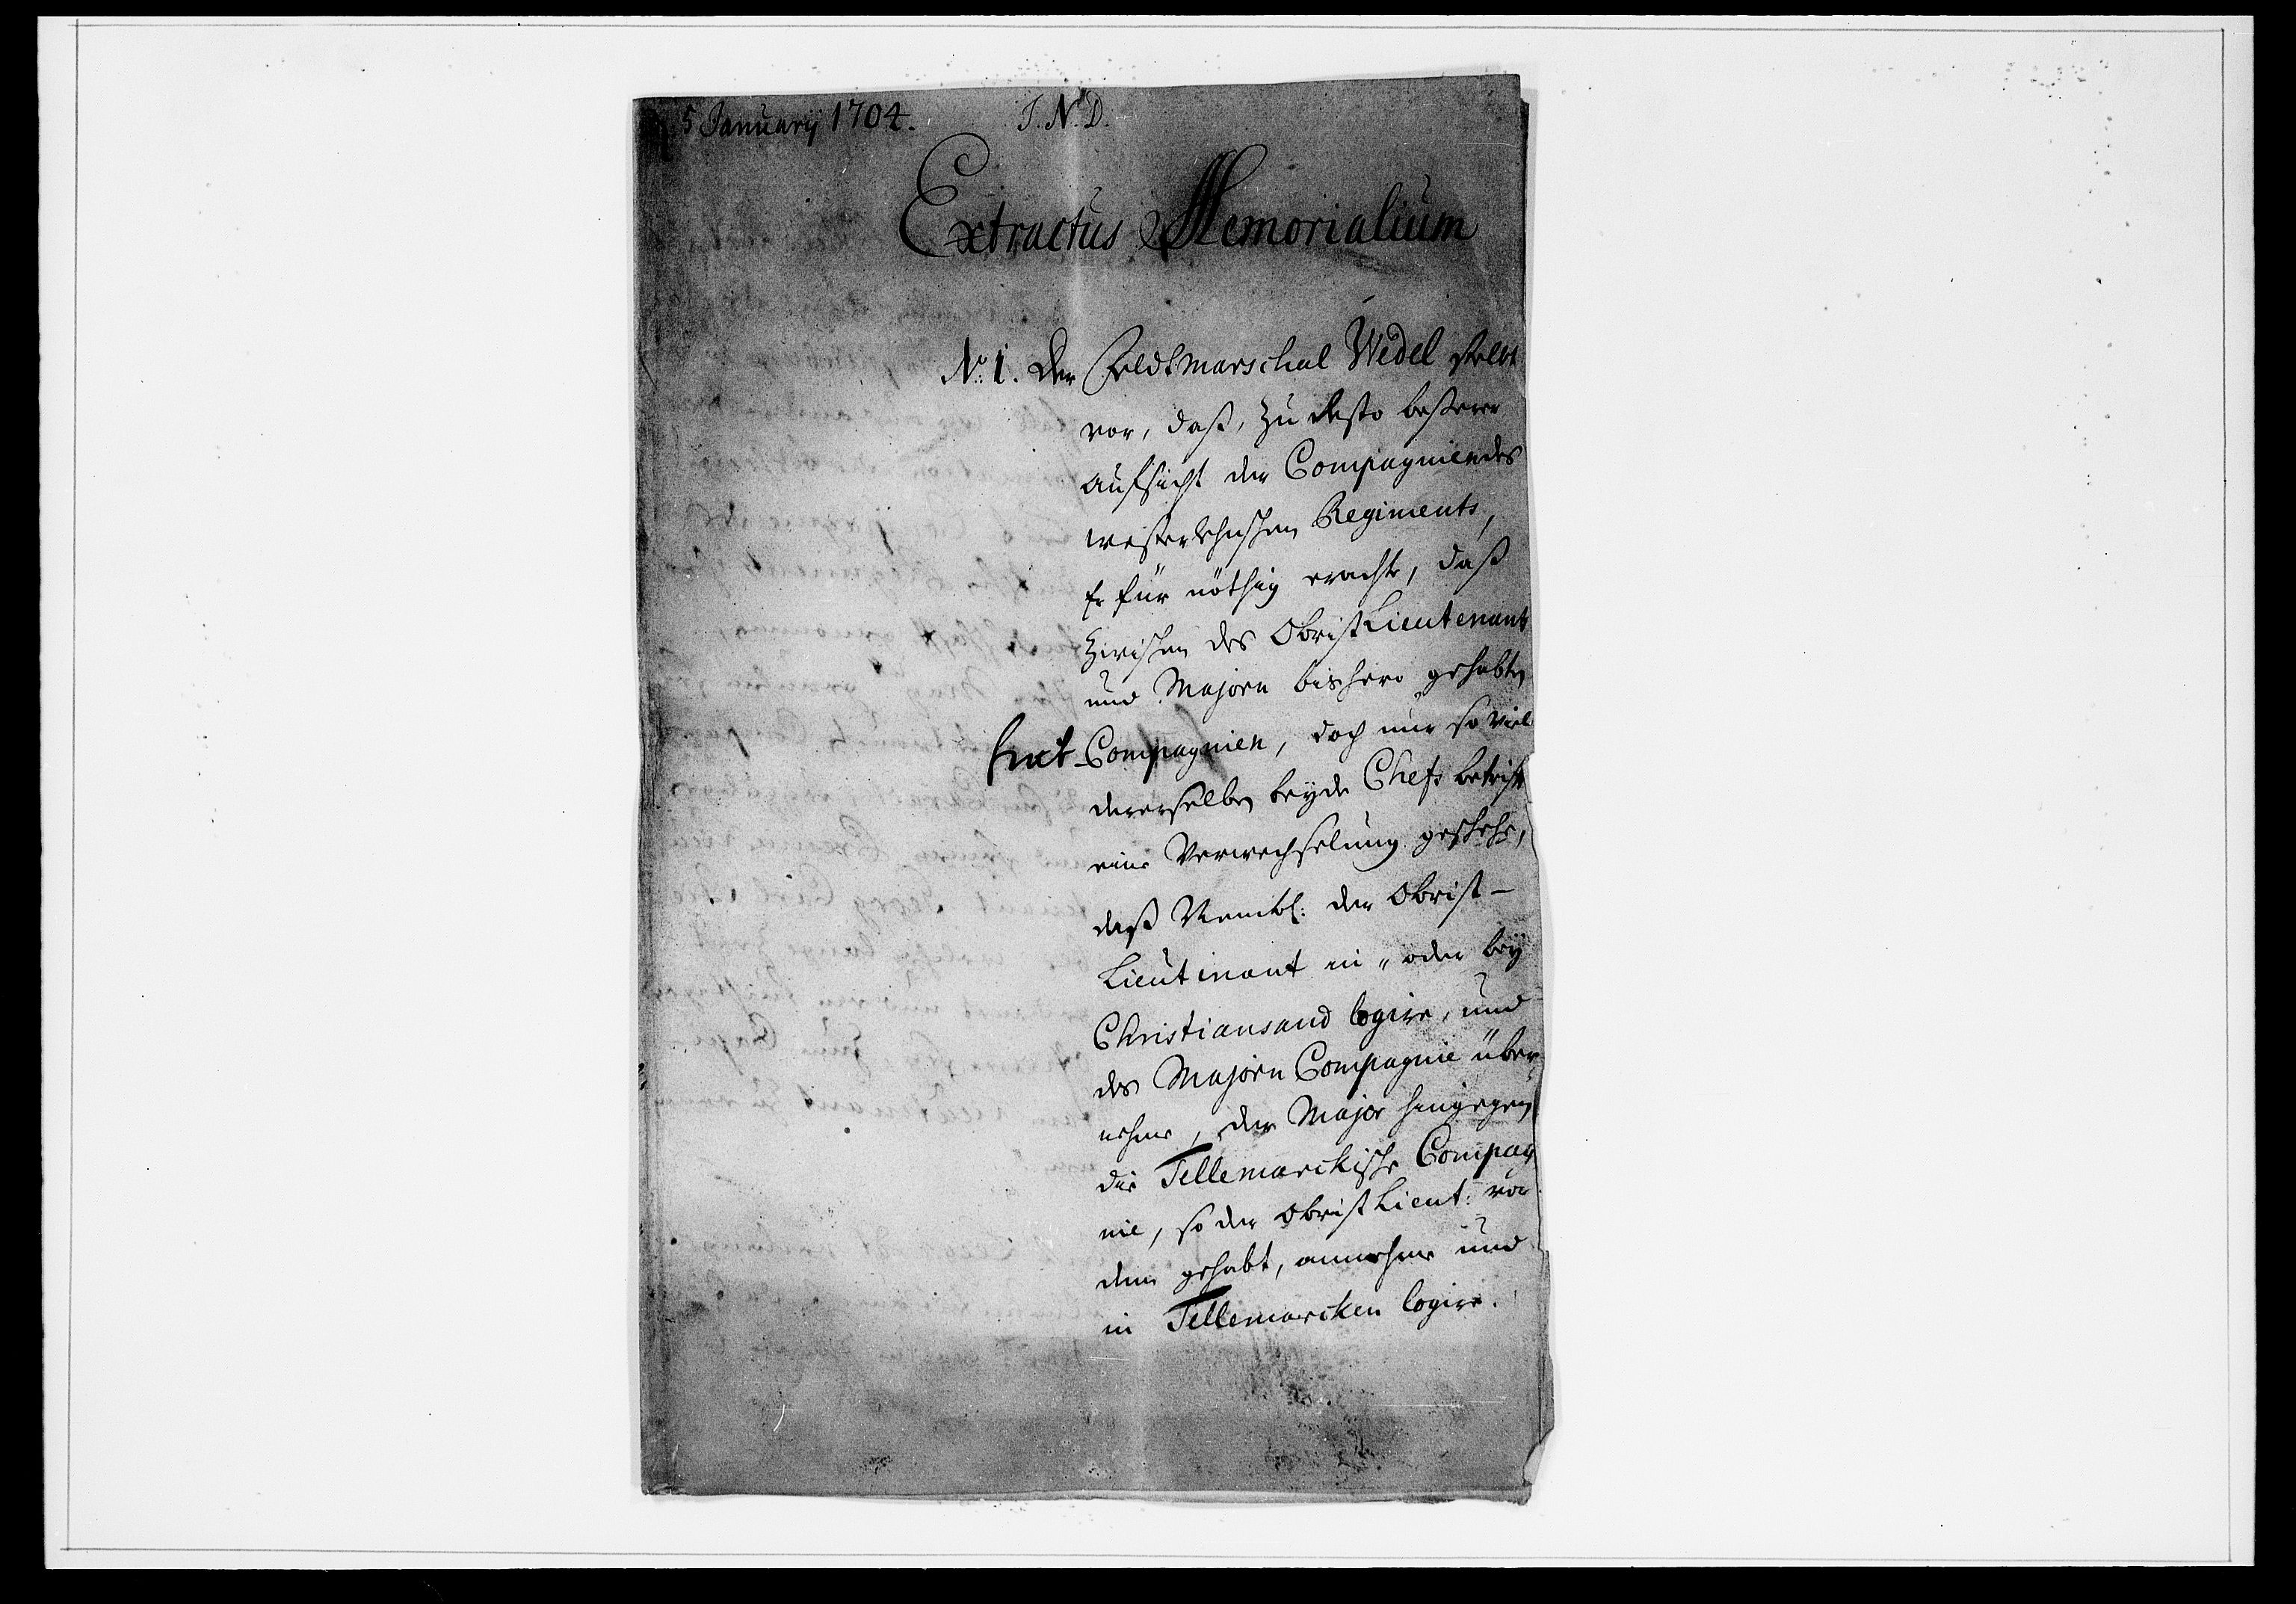 5 Januarij 1704. J. N. D.
Extractus Memorialium
No: 1. Der Feldtmarschal Wedel stellt
vor, daß, zu desto beßerer
aufsicht der Compagnien des
westerlehnschen Regiments,
Er für nöthig erachte, daß
zwischen des ObristLieutenants
und Majorn bishero gehabten
Compagnien, doch nur so viel
dererselben beyde Chefs betrifft
eine Verwechselung geschehe,
daß Nembl: der Obrist-
Lieutinant in- oder bey
Christiansand logire, und
des Majorn Compagnie über-
nehme, der Major hingegen
die Tellemarckische Compag
nie, so der ObristLieut: vor
dem gehabt, annehme und
in Tellemarcken logire.